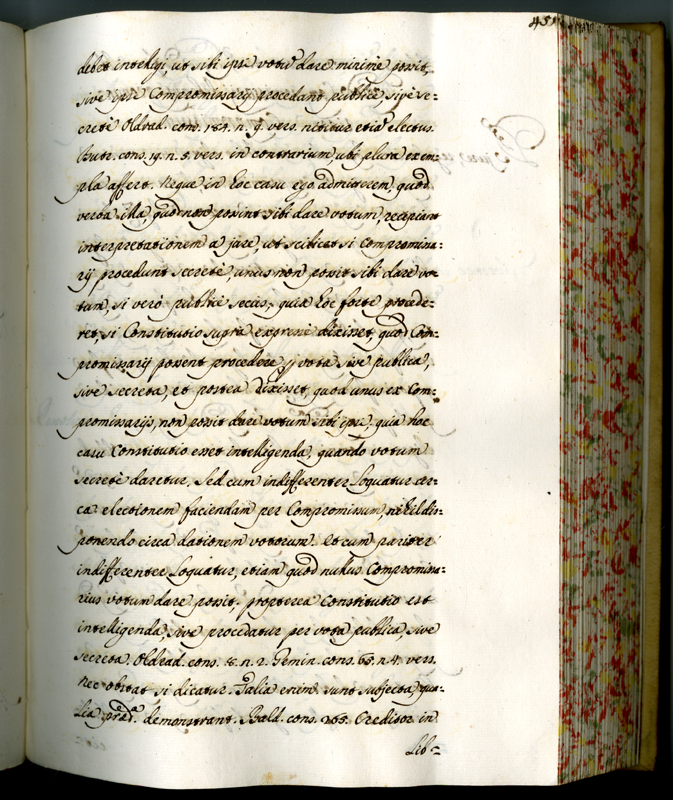 451
debet intelligi, ut sibi ipsi votũ dare minime possit,
sive ipsi Compromissarij procedant publicè, sive se=
cretè Oldrad. cons. 184. n. 9. vers. nititur etiã electus.
Butr. cons. 19. n. 5. vers. in contrarium, ubi plura exem=
pla affert. Neque in hoc casu ego admitterem, quod
verba illa, quod non possint sibi dare votum, recipiant
interpretationem a jure, ut scilicet si Compromissa=
rij procedunt secretè, unus non possit sibi dare vo=
tum, si verò publicè secus, quia hoc fortè procede=
ret, si Constitutio supra expressè dixisset, quod Com=
promissarij possent procedere p vota sive publica,
sive secreta, et postea dixisset, quod unus ex Com=
promissarijs, non possit dare votum sibi ipsi, quia hoc
casu Constitutio esset intelligenda, quando votum
secretè daretur. Sed cum indifferenter loquatur cir=
ca electionem faciendam per Compromissum, nihil dis=
ponendo circa dationem votorum. et cum pariter
indifferenter loquatur, etiam quod nullus Compromissa=
rius votum dare possit, propterea Constitutio est
intelligenda, sive procedatur per vota publica, sive
secreta. Oldrad. cons. n. 2. Gemin. cons. 65. n. 4. vers.
Nec obstat si dicatur. Talia enim sunt subjecta, qua=
lia prædta. demonstrant. Bald. cons. 265. Creditor in
Lib=